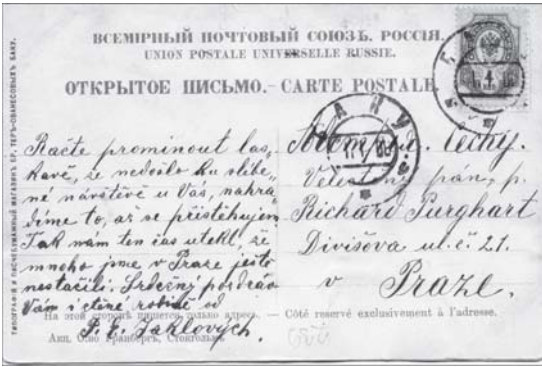 ВСЕМІРНЫЙ ПОЧТОВЫЙ СОЮЗЪ. РОССІЯ.
UNION POSTALE UNIVERSELLE RUSSIE.
ОТКРЫТОЕ ПИСЬМО.- CARTE POSTALE.
Račte prominout las-
kavě, že nedošlo ku slíbe-
né návštěvě u Vás, nahra-
díme to, až se přistěhujem.
Tak nám ten čas utekl, že
mnoho jsme v Praze ještě
nestačili. Srdečný pozdrav
Vám i ctěné rodině od
P. T. Jaklových.
Čechy.
pán, p.
Richard Purghart
Divišova ul. č. 21.
v Praze.
На этой сторонѣ пишется только адресъ. — Côté reservé exclusivement à l'adresse.
Акц. О-во Гранбергъ, Стокгольмъ